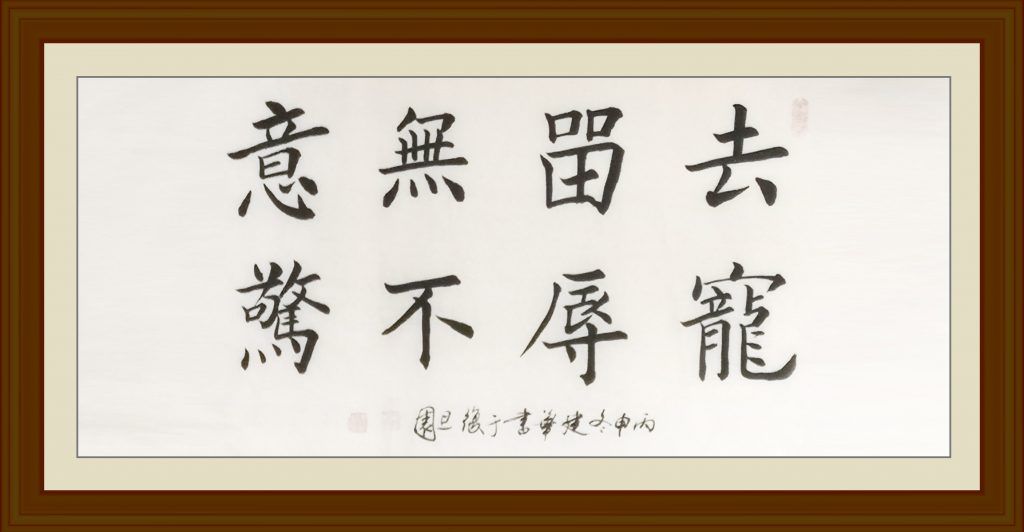 去留無意
寵辱不驚
丙申冬建華書于復旦園